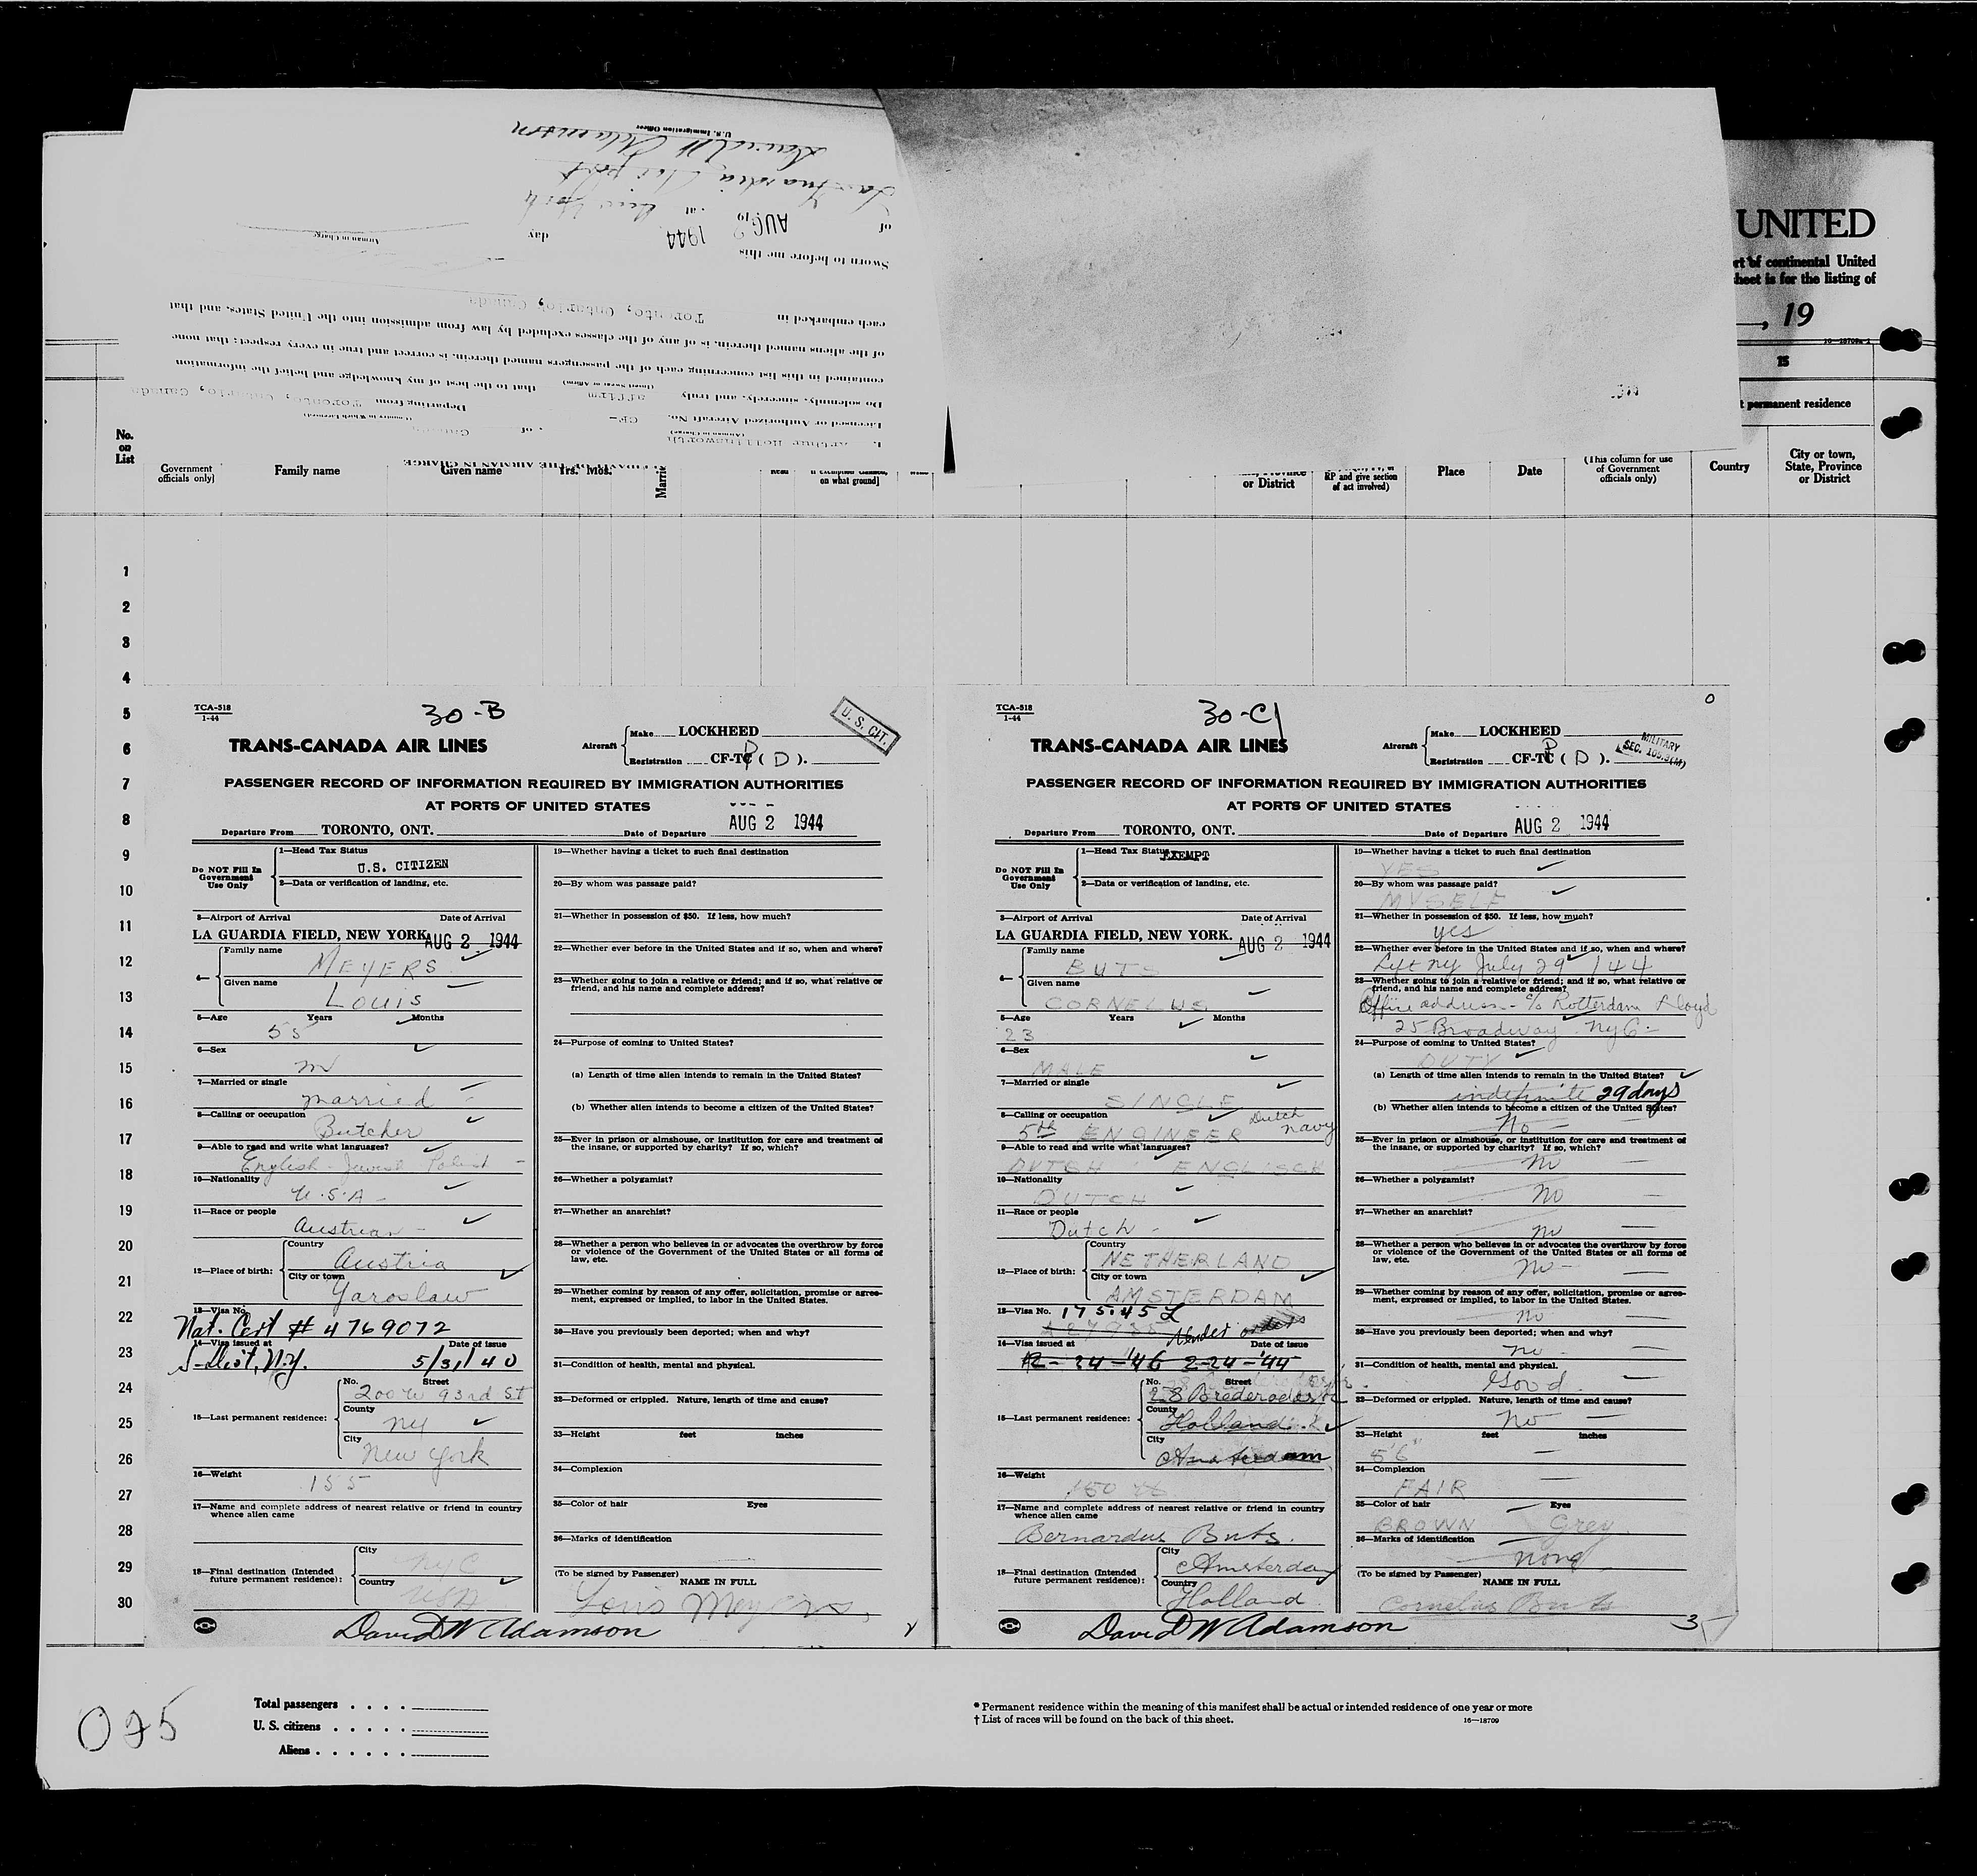 UNITED
rt of continental United
heet is for the listing of
, 19
16—18709
15
t permanent residence
U.S. Immigration Officer
David W Adamson
La Guardia Air port
of AUG 2 1944 at New York
Sworn to before me this day
Airman in Charge
each embarked in Toronto, Ontario, Canada
of the aliens named therein, is of any of the classes excluded by law from admission into the United States, and that
contained in this list concerning each of the passengers named therein, is correct and true in every respect; that none
Do solemnly, sincerely, and truly affirm that to the best of my knowledge and belief the information
(Insert Swear or Affirm)
Licensed or Authorized Aircraft No. CF- Departing from Toronto, Ontario, Canada
(Airman in Charge) (Country in Which Licensed)
I, Arthur Hollinsworth of Canada
AFFIDAVIT OF THE AIRMAN IN CHARGE
No. on List
Government officials only)
Family name
Given name
Yrs. Mos.
Read
on what ground]
or District
RP and give section of act involved)
Place
Date
(This column for use of Government officials only)
Country
City or town, State, Province or District
1
2
3
4
5
6
7
8
9
10
11
12
13
14
15
16
17
18
19
20
21
22
23
24
25
26
27
28
29
30
TCA-518
1-44
30-B
U. S. CIT.
TRANS-CANADA AIR LINES
Aircraft Make LOCKHEED
Registration CF-TC P (D).
PASSENGER RECORD OF INFORMATION REQUIRED BY IMMIGRATION AUTHORITIES
AT PORTS OF UNITED STATES
Departure From TORONTO, ONT. Date of Departure AUG 2 1944
Do NOT Fill In Government Use Only
1—Head Tax Status
U.S. CITIZEN
2—Data or verification of landing, etc.
3—Airport of Arrival Date of Arrival
LA GUARDIA FIELD, NEW YORK. AUG 2 1944
4— Family name
MEYERS
Given name
LOUIS
5—Age Years Months
55
6—Sex
M
7—Married or single
married
8—Calling or occupation
Butcher
9—Able to read and write what languages?
English - Jewish Polish
10—Nationality
U.S.A.
11—Race or people
Austrian
12—Place of birth: Country
Austria
City or town
Yaroslaw
13—Visa No.
Nat. Cert # 4769072
14—Visa issued at Date of issue
S-Dist, N.Y. 5/31/40
15—Last permanent residence: No. Street
200 W 93rd St
County
NY
City
New York
16—Weight
155
17—Name and complete address of nearest relative or friend in country whence alien came
18—Final destination (Intended future permanent residence): City
NYC
Country
USA
19—Whether having a ticket to such final destination
20—By whom was passage paid?
21—Whether in possession of $50. If less, how much?
22—Whether ever before in the United States and if so, when and where?
23—Whether going to join a relative or friend; and if so, what relative or friend, and his name and complete address?
24—Purpose of coming to United States?
(a) Length of time alien intends to remain in the United States?
(b) Whether alien intends to become a citizen of the United States?
25—Ever in prison or almshouse, or institution for care and treatment of the insane, or supported by charity? If so, which?
26—Whether a polygamist?
27—Whether an anarchist?
28—Whether a person who believes in or advocates the overthrow by force or violence of the Government of the United States or all forms of law, etc.
29—Whether coming by reason of any offer, solicitation, promise or agreement, expressed or implied, to labor in the United States.
30—Have you previously been deported; when and why?
31—Condition of health, mental and physical.
32—Deformed or crippled. Nature, length of time and cause?
33—Height feet inches
34—Complexion
35—Color of hair Eyes
36—Marks of identification
(To be signed by Passenger) NAME IN FULL
Louis Meyers
David W Adamson
TCA-518
1-44
30-C
0
TRANS-CANADA AIR LINES
Aircraft Make LOCKHEED
Registration CF-TC P (D).
MILITARY
SEC. 105.3(M)
PASSENGER RECORD OF INFORMATION REQUIRED BY IMMIGRATION AUTHORITIES
AT PORTS OF UNITED STATES
Departure From TORONTO, ONT. Date of Departure AUG 2 1944
Do NOT Fill In Government Use Only
1—Head Tax Status
EXEMPT
2—Data or verification of landing, etc.
3—Airport of Arrival Date of Arrival
LA GUARDIA FIELD, NEW YORK. AUG 2 1944
4— Family name
BUTS
Given name
CORNELUS
5—Age Years Months
23
6—Sex
MALE
7—Married or single
SINGLE
8—Calling or occupation
5th ENGINEER Dutch Navy
9—Able to read and write what languages?
DUTCH ENGLISCH
10—Nationality
DUTCH
11—Race or people
Dutch
12—Place of birth: Country
NETHERLAND
City or town
AMSTERDAM
13—Visa No. 175452
14—Visa issued at Date of issue
2-24-'44
15—Last permanent residence: No. Street
28 Brederodestr
County
Holland
City
Amsterdam
16—Weight
150
17—Name and complete address of nearest relative or friend in country whence alien came
Bernardus Buts.
18—Final destination (Intended future permanent residence): City
Amsterdam
Country
Holland
19—Whether having a ticket to such final destination
YES
20—By whom was passage paid?
MYSELF
21—Whether in possession of $50. If less, how much?
yes
22—Whether ever before in the United States and if so, when and where?
Left NY July 29 / 44
23—Whether going to join a relative or friend; and if so, what relative or friend, and his name and complete address?
Office address - c/o Rotterdam Lloyd
25 Broadway NYC
24—Purpose of coming to United States?
DUTY
(a) Length of time alien intends to remain in the United States?
indefinite 29 days
(b) Whether alien intends to become a citizen of the United States?
No
25—Ever in prison or almshouse, or institution for care and treatment of the insane, or supported by charity? If so, which?
No
26—Whether a polygamist?
No
27—Whether an anarchist?
No
28—Whether a person who believes in or advocates the overthrow by force or violence of the Government of the United States or all forms of law, etc.
No
29—Whether coming by reason of any offer, solicitation, promise or agreement, expressed or implied, to labor in the United States.
No
30—Have you previously been deported; when and why?
no
31—Condition of health, mental and physical.
Good
32—Deformed or crippled. Nature, length of time and cause?
No
33—Height feet inches
5'6"
34—Complexion
FAIR
35—Color of hair Eyes
BROWN Grey
36—Marks of identification
none
(To be signed by Passenger) NAME IN FULL
Cornelus Buts
David W Adamson
3
Total passengers
U. S. citizens
Aliens
* Permanent residence within the meaning of this manifest shall be actual or intended residence of one year or more
† List of races will be found on the back of this sheet. 16—18709